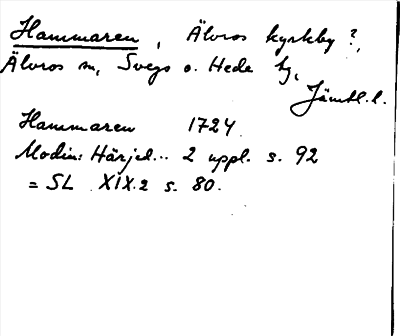 Hammaren, Älvros kyrkby?,
Älvros sn, Svegs o. Hede tg,
Jämtl. l.
Hammaren 1724
Modin: Härjed... 2 uppl. s. 92
= SL XIX.2 s. 80.